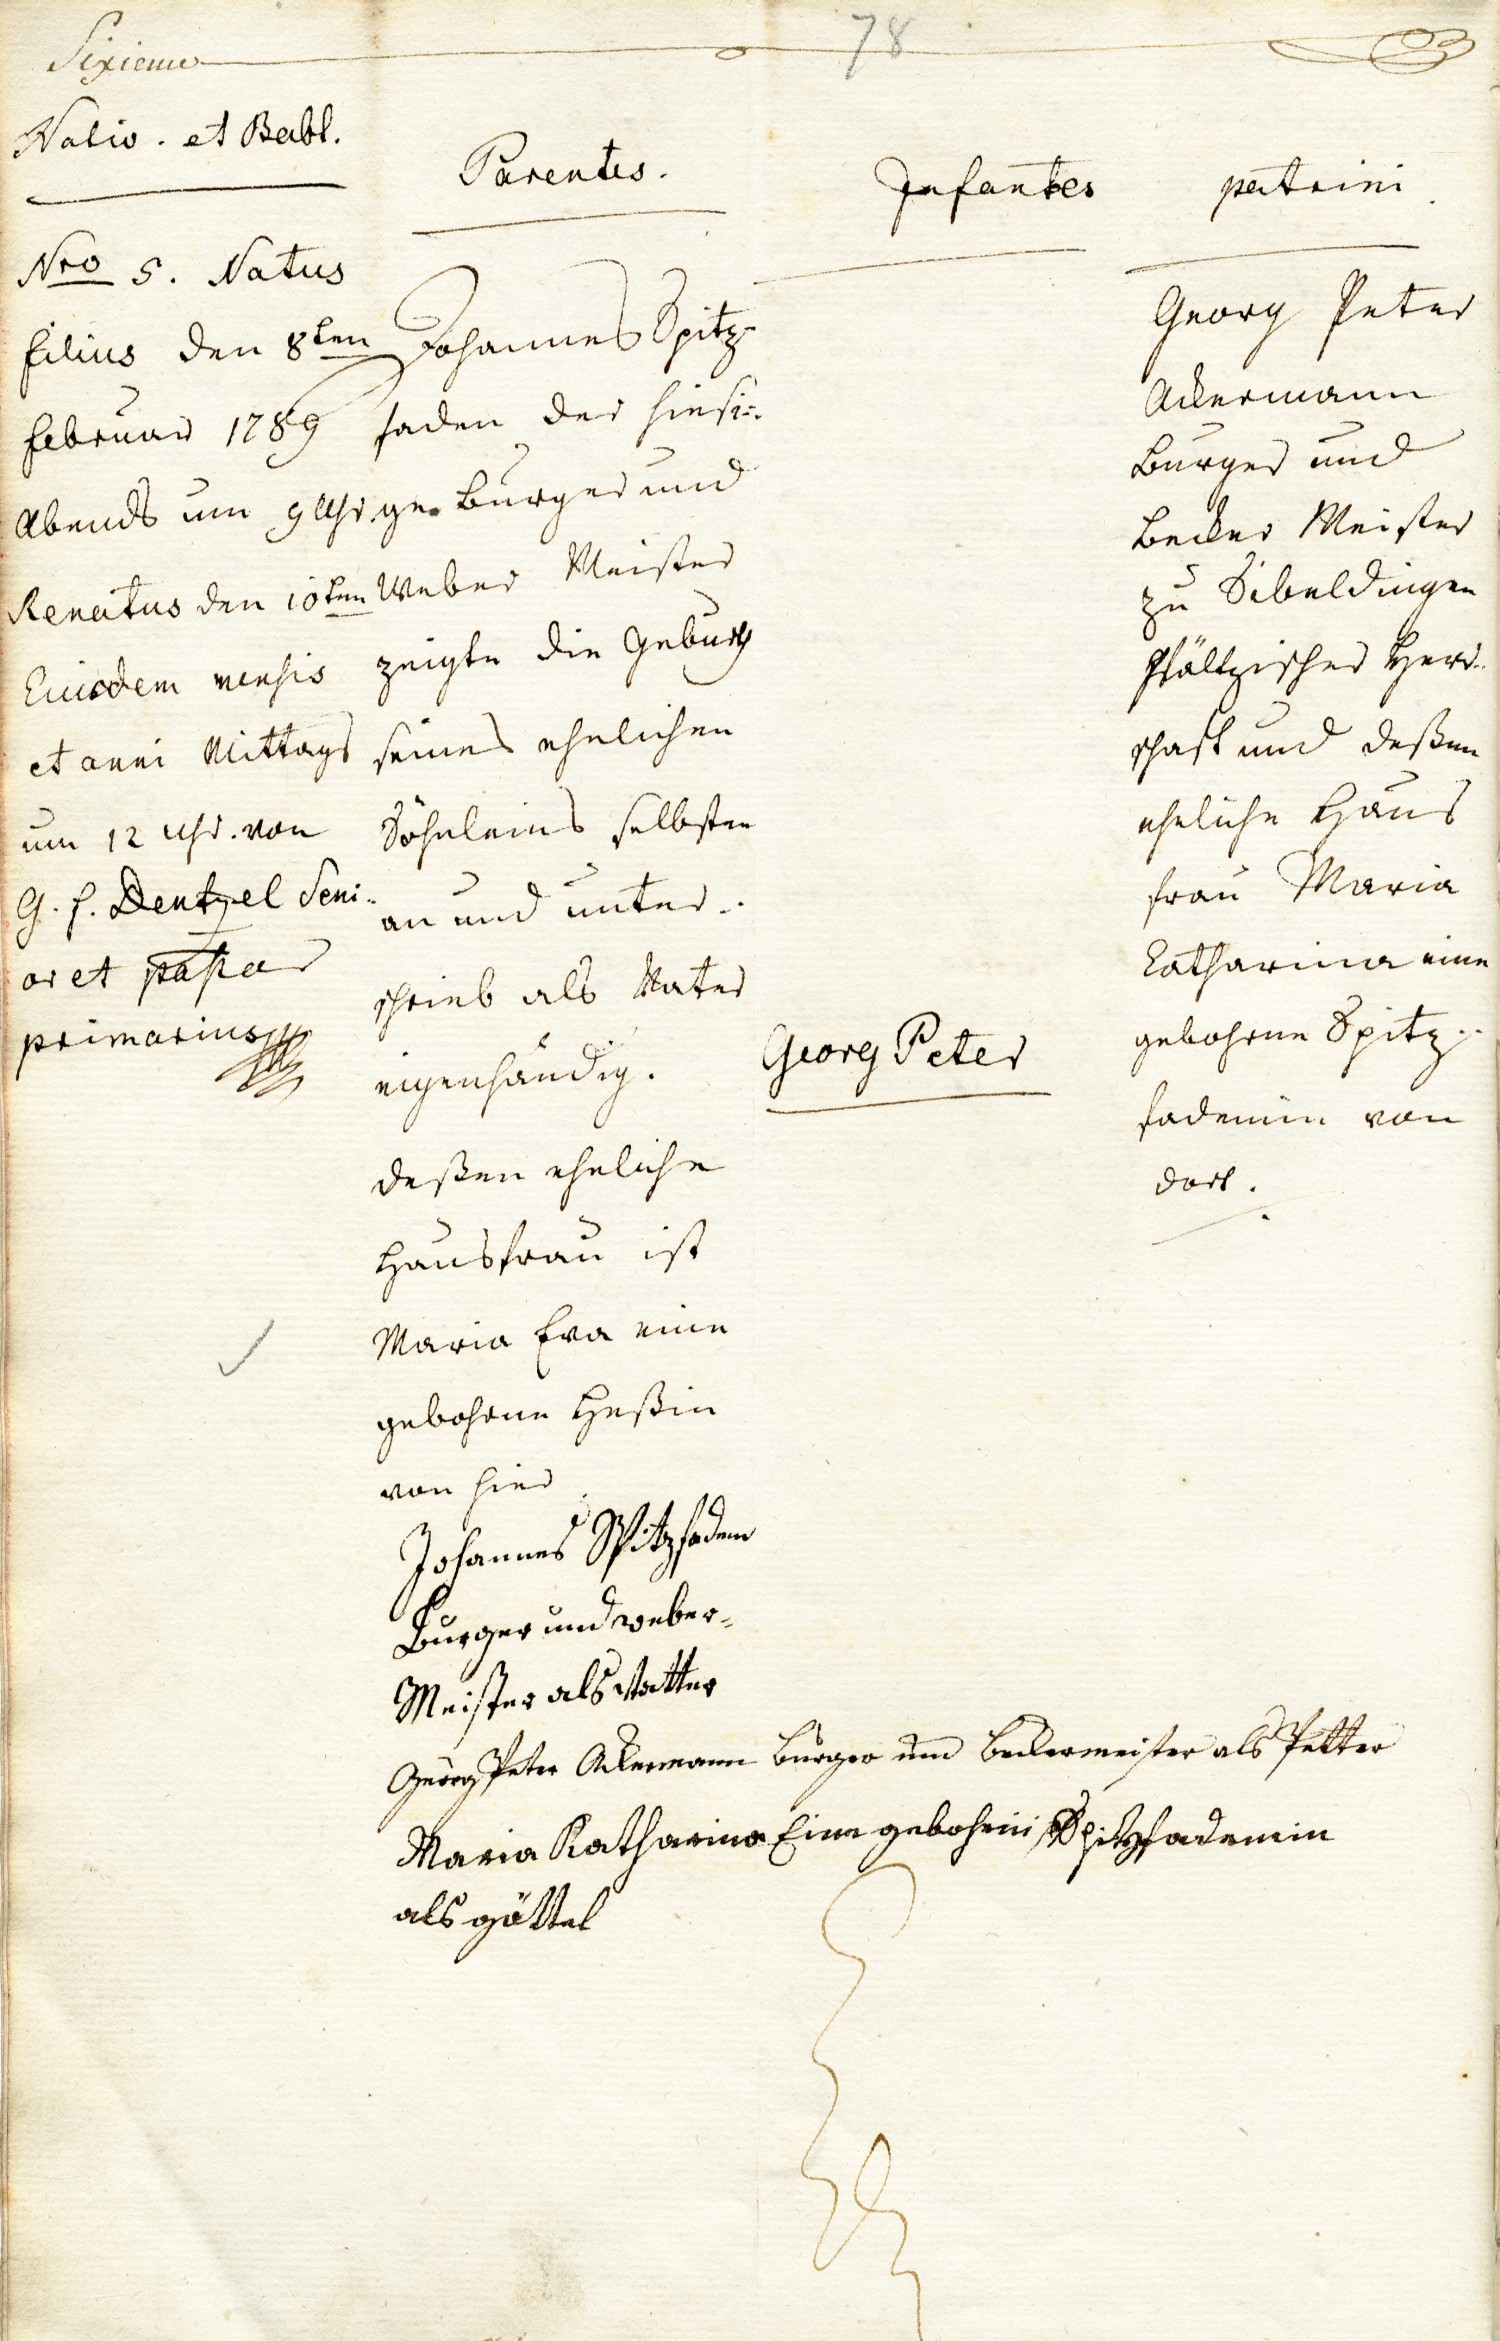 Sixieme
78
Nativ. et Babt.
Nro 5. Natus
filius den 8ten
Februar 1789
Abends um 9 Uhr.
Renatus den 10ten
Eiusdem mensis
et anni Mittags
um 12 Uhr. von
G. F. Dentzel Seni-
or et pastor
primarius
Parentes.
Johannes Spitz-
faden der hiesi-
ge Burger und
Weber Meister
zeigte die Geburth
seines ehelichen
Söhnleins selbsten
an und unter-
schrieb als Vater
eigenhändig.
deßen eheliche
Hausfrau ist
Maria Eva eine
gebohrne Heßin
von hier
Infantes
Georg Peter
patrini
Georg Peter
Ackermann
Burger und
Becker Meister
zu Sibeldingen
Pfältzischer Herr-
schaft und deßen
eheliche Haus
frau Maria
Catharina eine
gebohrne Spitz-
fadenin von
dort.
Johannes Spitzfaden
Burger und weber-
Meister als Vatter
Georg Peter Ackermann burger und beckermeister als Petter
Maria Katharina Eine gebohrni Spitzfadenin
als göttel